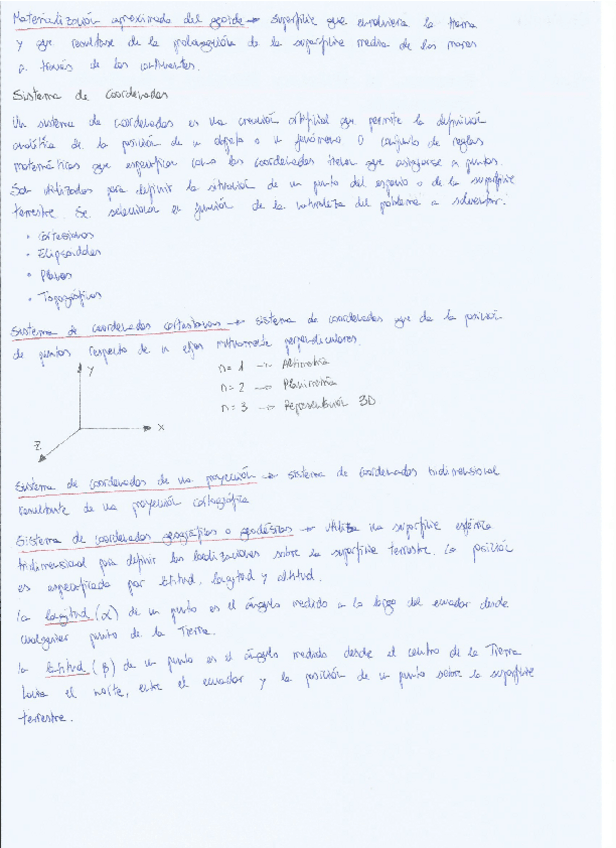 Materialización aproximada del geoide → superficie que envolviera la tierra
y que resultase de la prolongación de la superficie media de los mares
a través de los continentes.
Sistema de coordenadas
Un sistema de coordenadas es una creación artificial que permite la definición
analítica de la posición de un objeto o un fenómeno O conjunto de reglas
matemáticas que especifican como las coordenadas tienen que asignarse a puntos.
Son utilizados para definir la situación de un punto del espacio o de la superficie
terrestre. Se seleccionan en función de la naturaleza del problema a solventar:
• Cartesianas
• Elipsoidales
• Planas
• Topográficas
Sistema de coordenadas cartesianas → sistema de coordenadas que da la posición
de puntos respecto de n ejes mutuamente perpendiculares.
y
x
z
n = 1 → Altimetría
n = 2 → Planimetría
n = 3 → Representación 3D
Sistema de coordenadas de una proyección → sistema de coordenadas bidimensional
resultante de una proyección cartográfica
Sistema de coordenadas geográficas o geodésicas → utiliza una superficie esférica
tridimensional para definir las localizaciones sobre la superficie terrestre. La posición
es especificada por latitud, longitud y altitud.
La longitud (α) de un punto es el ángulo medido a lo largo del ecuador desde
cualquier punto de la Tierra.
La latitud (β) de un punto es el ángulo medido desde el centro de la Tierra
hacia el norte, entre el ecuador y la posición de un punto sobre la superficie
terrestre.